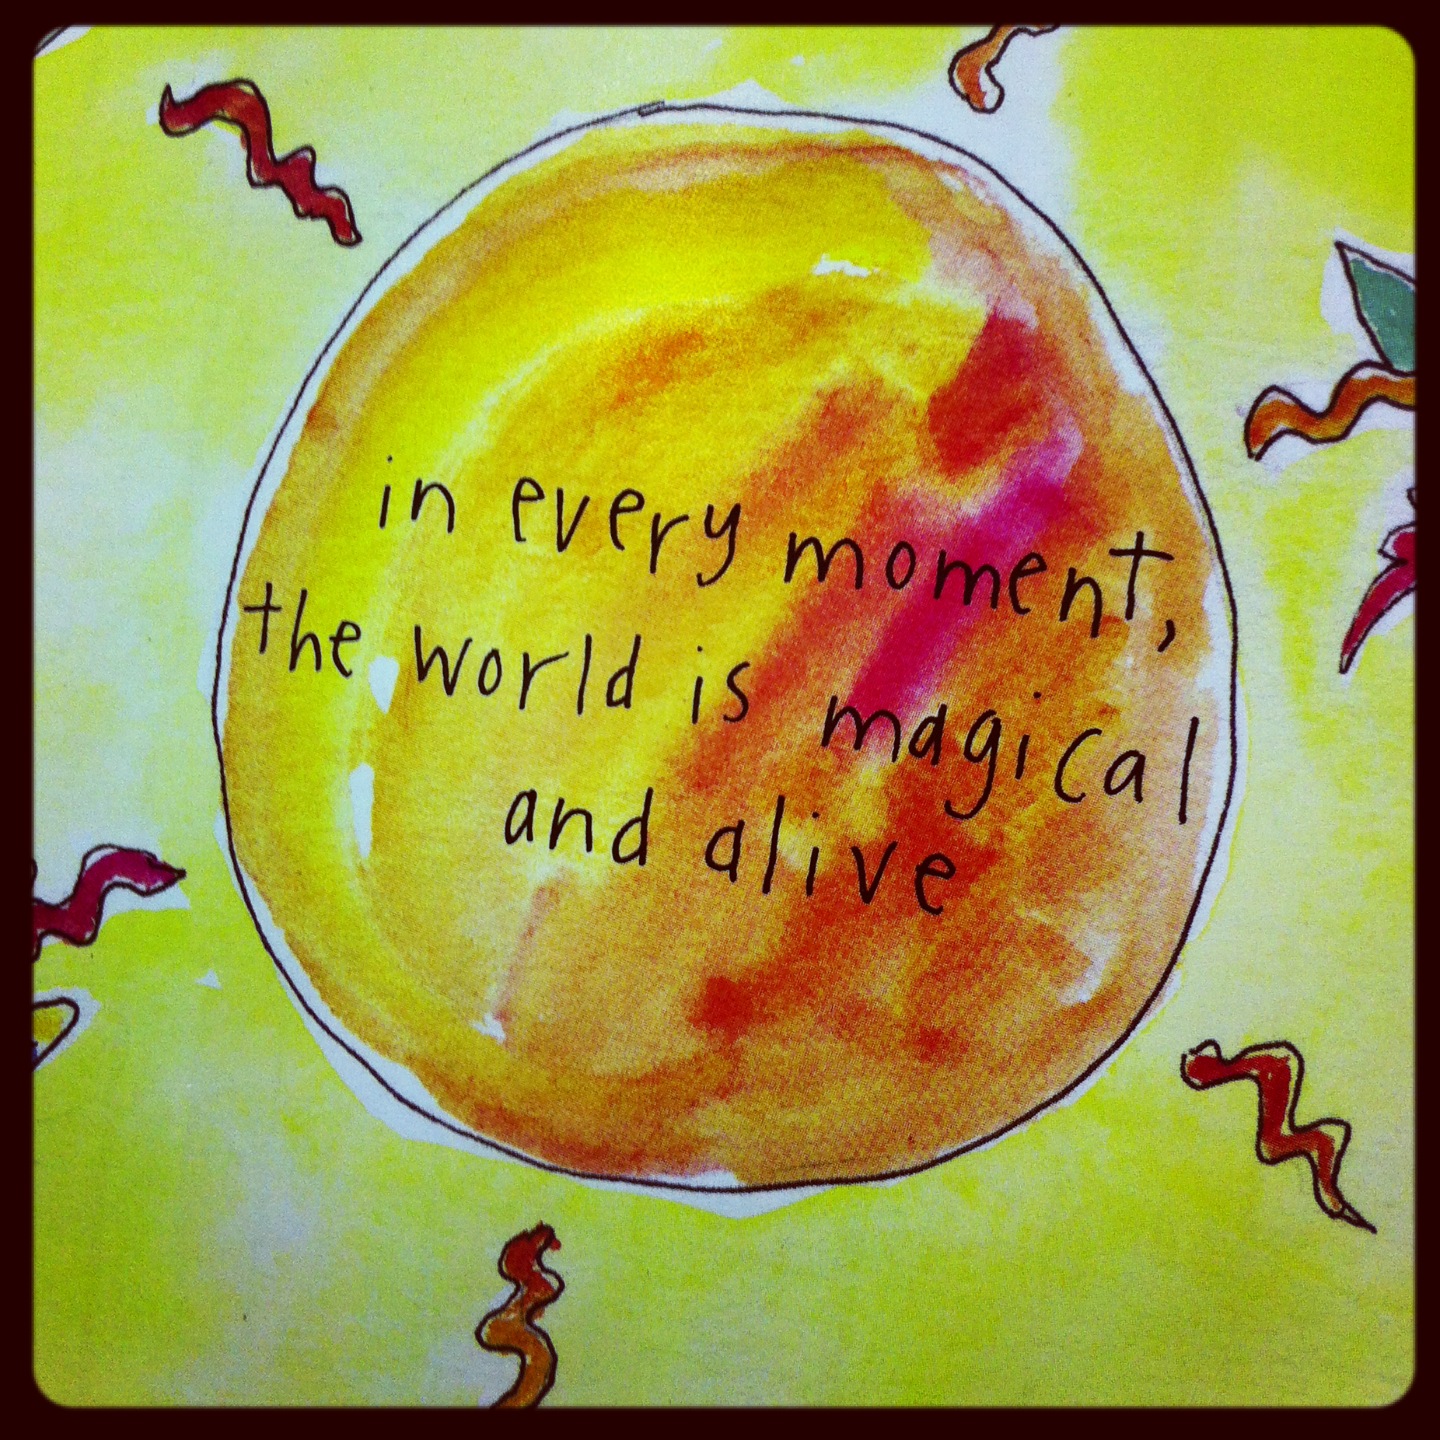 in every moment,
the world is magical
and alive